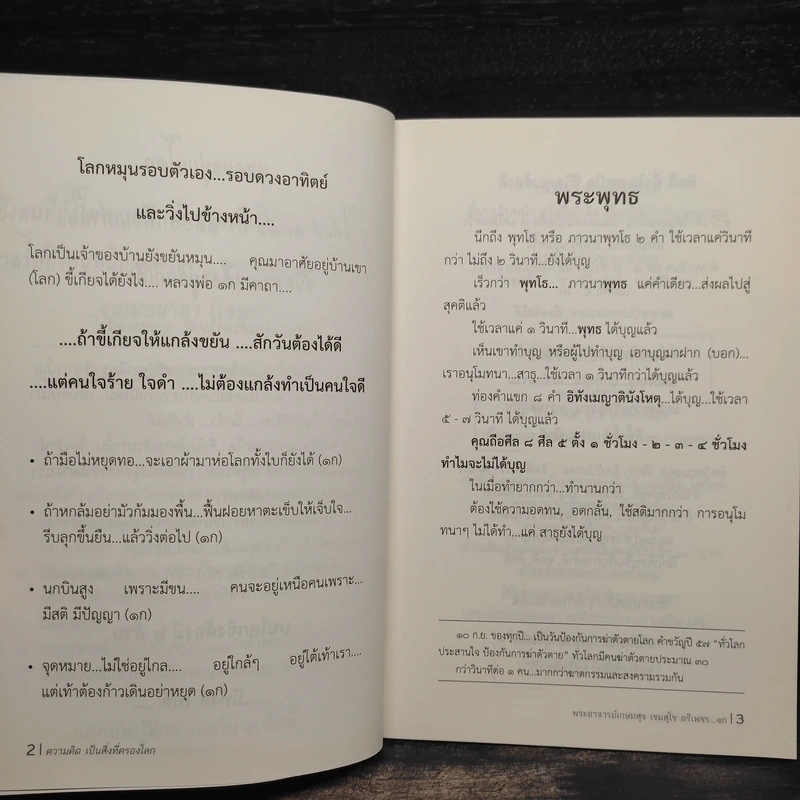 โลกหมุนรอบตัวเอง...รอบดวงอาทิตย์
และวิ่งไปข้างหน้า....
โลกเป็นเจ้าของบ้านยังขยันหมุน.... คุณมาอาศัยอยู่บ้านเขา
(โลก) ขี้เกียจได้ยังไง.... หลวงพ่อ ๑ก มีคาถา....
....ถ้าขี้เกียจให้แกล้งขยัน ....สักวันต้องได้ดี
....แต่คนใจร้าย ใจดำ ....ไม่ต้องแกล้งทำเป็นคนใจดี
• ถ้ามือไม่หยุดทอ...จะเอาผ้ามาห่อโลกทั้งใบก็ยังได้ (๑ก)
• ถ้าหกล้มอย่ามัวก้มมองพื้น...ฟื้นฝอยหาตะเข็บให้เจ็บใจ...
รีบลุกขึ้นยืน...แล้ววิ่งต่อไป (๑ก)
• นกบินสูง เพราะมีขน.... คนจะอยู่เหนือคนเพราะ...
มีสติ มีปัญญา (๑ก)
• จุดหมาย...ไม่ใช่อยู่ไกล.... อยู่ใกล้ๆ อยู่ใต้เท้าเรา....
แต่เท้าต้องก้าวเดินอย่าหยุด (๑ก)
2 | ความคิด เป็นสิ่งที่ครองโลก
พระพุทธ
นึกถึง พุทโธ หรือ ภาวนาพุทโธ ๒ คำ ใช้เวลาแค่วินาที
กว่า ไม่ถึง ๒ วินาที...ยังได้บุญ
เร็วกว่า พุทโธ... ภาวนาพุทธ แค่คำเดียว...ส่งผลไปสู่
สุคติแล้ว
ใช้เวลาแค่ ๑ วินาที...พุทธ ได้บุญแล้ว
เห็นเขาทำบุญ หรือผู้ไปทำบุญ เอาบุญมาฝาก (บอก)...
เราอนุโมทนา...สาธุ...ใช้เวลา ๑ วินาทีกว่าได้บุญแล้ว
ท่องคำแขก ๘ คำ อิทังเมญาตินังโหตุ...ได้บุญ...ใช้เวลา
๕ - ๗ วินาที ได้บุญแล้ว
คุณถือศีล ๘ ศีล ๕ ตั้ง ๑ ชั่วโมง - ๒ - ๓ - ๔ ชั่วโมง
ทำไมจะไม่ได้บุญ
ในเมื่อทำยากกว่า...ทำนานกว่า
ต้องใช้ความอดทน, อดกลั้น, ใช้สติมากกว่า การอนุโม
ทนาๆ ไม่ได้ทำ...แค่ สาธุยังได้บุญ
๑๐ ก.ย. ของทุกปี... เป็นวันป้องกันการฆ่าตัวตายโลก คำขวัญปี ๕๗ "ทั่วโลก
ประสานใจ ป้องกันการฆ่าตัวตาย" ทั่วโลกมีคนฆ่าตัวตายประมาณ ๓๐
กว่าวินาทีต่อ ๑ คน...มากกว่าฆาตกรรมและสงครามรวมกัน
พระอาจารย์เกษมสุข เขมสุโข ตรีเพชร...๑ก | 3